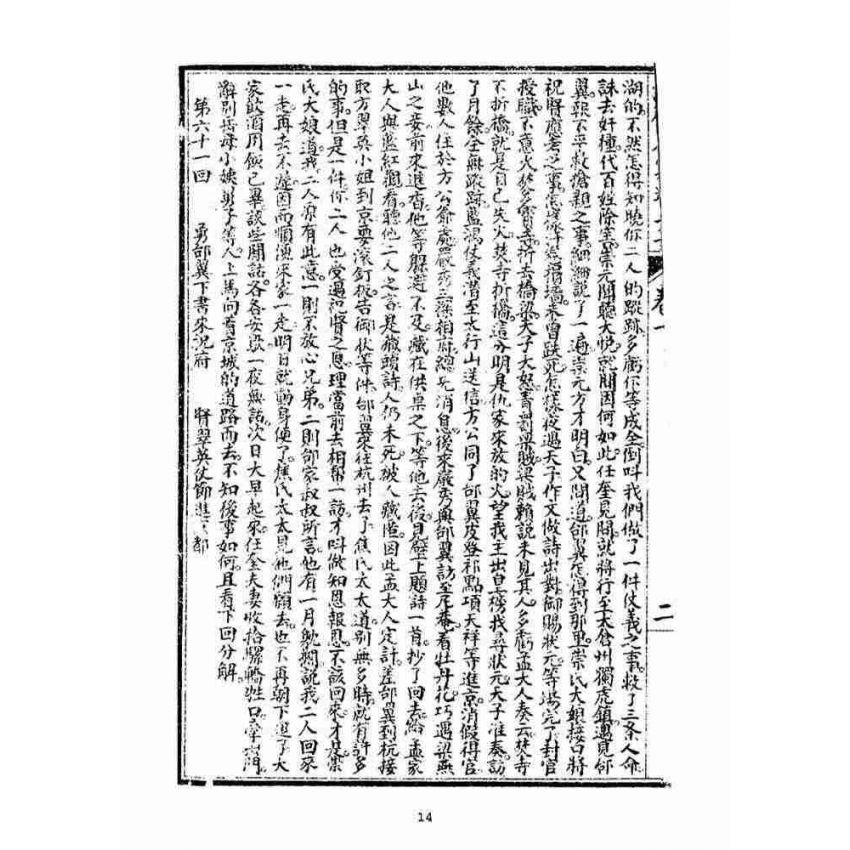 湖的不然怎得知曉你二人的蹤跡多虧你等成全倒叫我們做了一件仗義之事救了三条人命
誅去奸種代百姓除害崇元聞聽大悅就問因何如此任奎見問就將行至太倉州獨虎鎮遇見邰
翼報不平救愴題之事細細說了一遍崇元方才明白又問道邰翼怎得到那里崇氏大娘接口將
祝賢府看之事怎
授職不意火焚多寶寺折去橋梁天子大怒責罰梁賊梁賊賴說未見其人多虧孟大人奏云焚寺
不折橋就是自己失火焚寺折橋這分明是仇家來放的火望我主出皇榜找尋狀元天子准奏訪
了月餘全無蹤跡藍鴻仗義潛至太行山送信方公同了邰翼皮登祁點項天祥等進京消假得官
他數人住於方公爺處嚴秀在梁相府總無消息後來嚴秀與邰翼訪至尼菴看牡丹花巧遇梁燕
山之妾前來進香他等躲避不及藏在供桌之下等他去後見壁上題詩一首抄了回去給孟家
大人與藍紅觀看聽他二人之言是藏頭詩人仍未死被人藏匿因此孟大人定計差邰翼到杭接
取方翠英小姐到京要滾釘板告御狀等件邰翼來往杭州去了焦氏太太道別無多時就有許多
的事但是一件你二人也受過祝賢之恩理當前去相幫一訪才叫做知恩報恩不該回來才是崇
氏大娘道我二人原有此意一則不放心兄弟二則邰家叔叔所言他有一月躭擱說我二人回來
一走再去不遲因而順便來家一走明日就動身便了焦氏太太見他們願去也不再朝下追了大
家飲酒用飯已畢談些閒話各各安寢一夜無話次日大早起來任奎夫妻收拾騾轎牲口牽出門
辭別岳母小姨舅子等人上馬向着京城的道路而去不知後事如何且看下回分解
第六十一回　勇邰翼下書宋況府　賢翠英仗節進京都
卷一
二
14